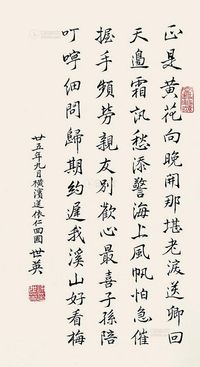 正是黃花向晚開那堪老淚送卿回
天邊霜訊愁添警海上風帆怕急催
握手頻勞親友別歡心最喜子孫陪
叮嚀細問歸期約遲我溪山好看梅
廿五年九月橫濱送依仁回國 世英